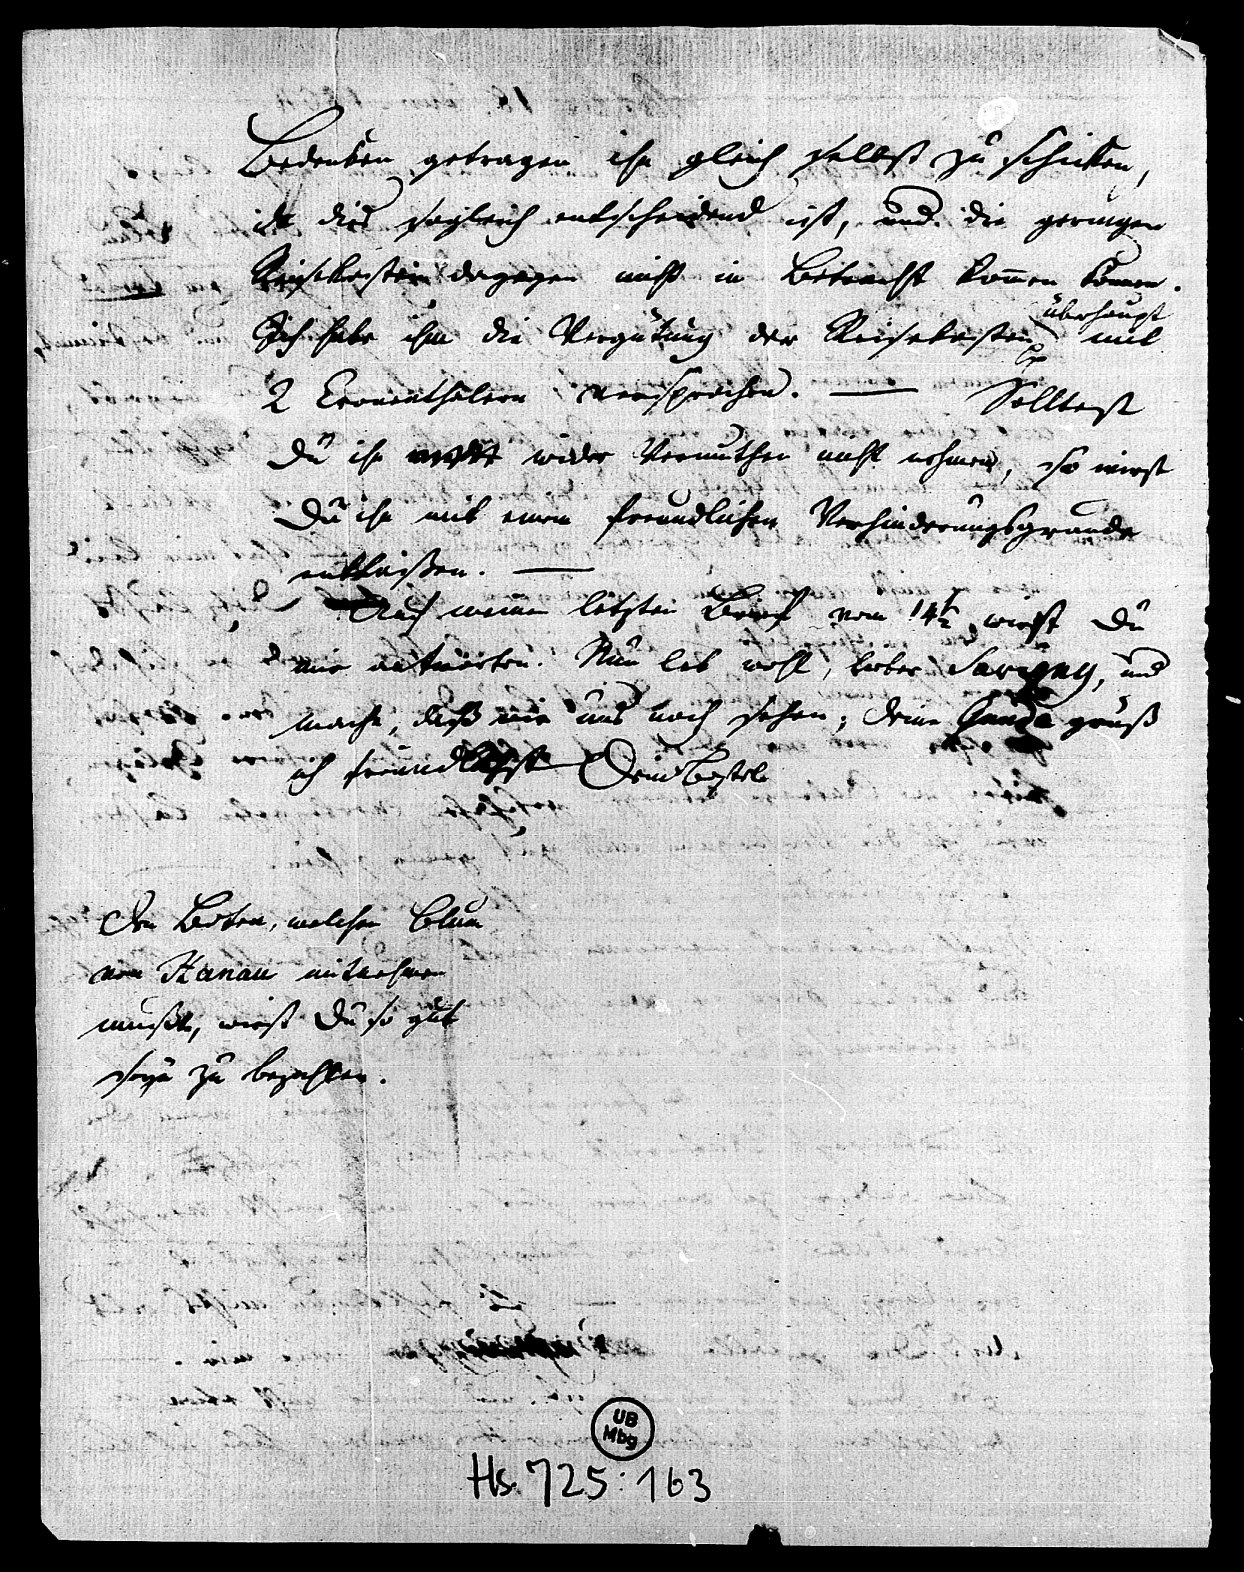 Bedenken getragen ihn gleich selbst zu schicken,
da dies sogleich entscheidend ist, und die geringen
Reisekosten dagegen nicht in Betracht kommen können.
Ich habe ihm die Vergütung der Reisekosten überhaupt mit
2 Cronenthalern versprochen. — Solltest
Du ihn wider Vermuthen nicht nehmen, so wirst
Du ihn mit einem freundlichen Verhinderungsgrunde
entlaßen. —
Auf meinen letzten Brief vom 14t wirst Du
mir antworten. Nun leb wohl, lieber Savigny, und
mache, daß wir uns noch sehen; Deine Gunda grüß
ich freundlichst Dein Bostel
Den Boten, welchen Blum
von Hanau mitnehmen
mußte, wirst Du so gut
seyn zu bezahlen.
UB
Mbg
Hs. 725:163